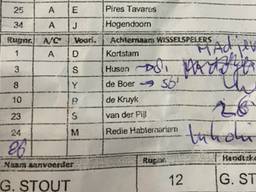 25 A E Pires Tavares
34 A J Hogendoorn
Rugnr. A/C* Voorl. Achternaam WISSELSPELERS
1 A D Kortstam
3 S Husen
8 Y de Boer → 56'
10 R de Kruyk
23 S van der Pijl
24 M Redie Habtemariam
26
Naam aanvoerder Rugnr.
G. STOUT 12 G. ST